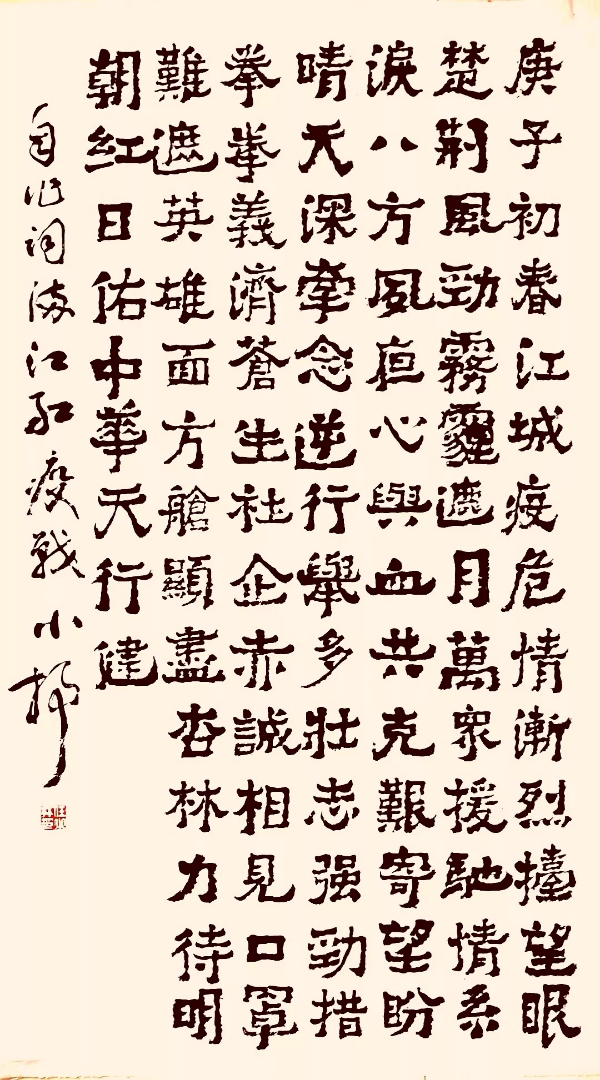 庚子初春江城疫危情漸烈擡望眼
楚荆風勁霧霾遮月萬衆援馳情系
淚八方風心與血共克艱寄望盼
晴天深牽念逆行舉多壯志强勁措
拳拳義濟蒼生社企赤誠相見口罩
難遮英雄面方艙顯盡杏林力待明
朝紅日佑中華天行健
自作詞滿江紅疫戰小